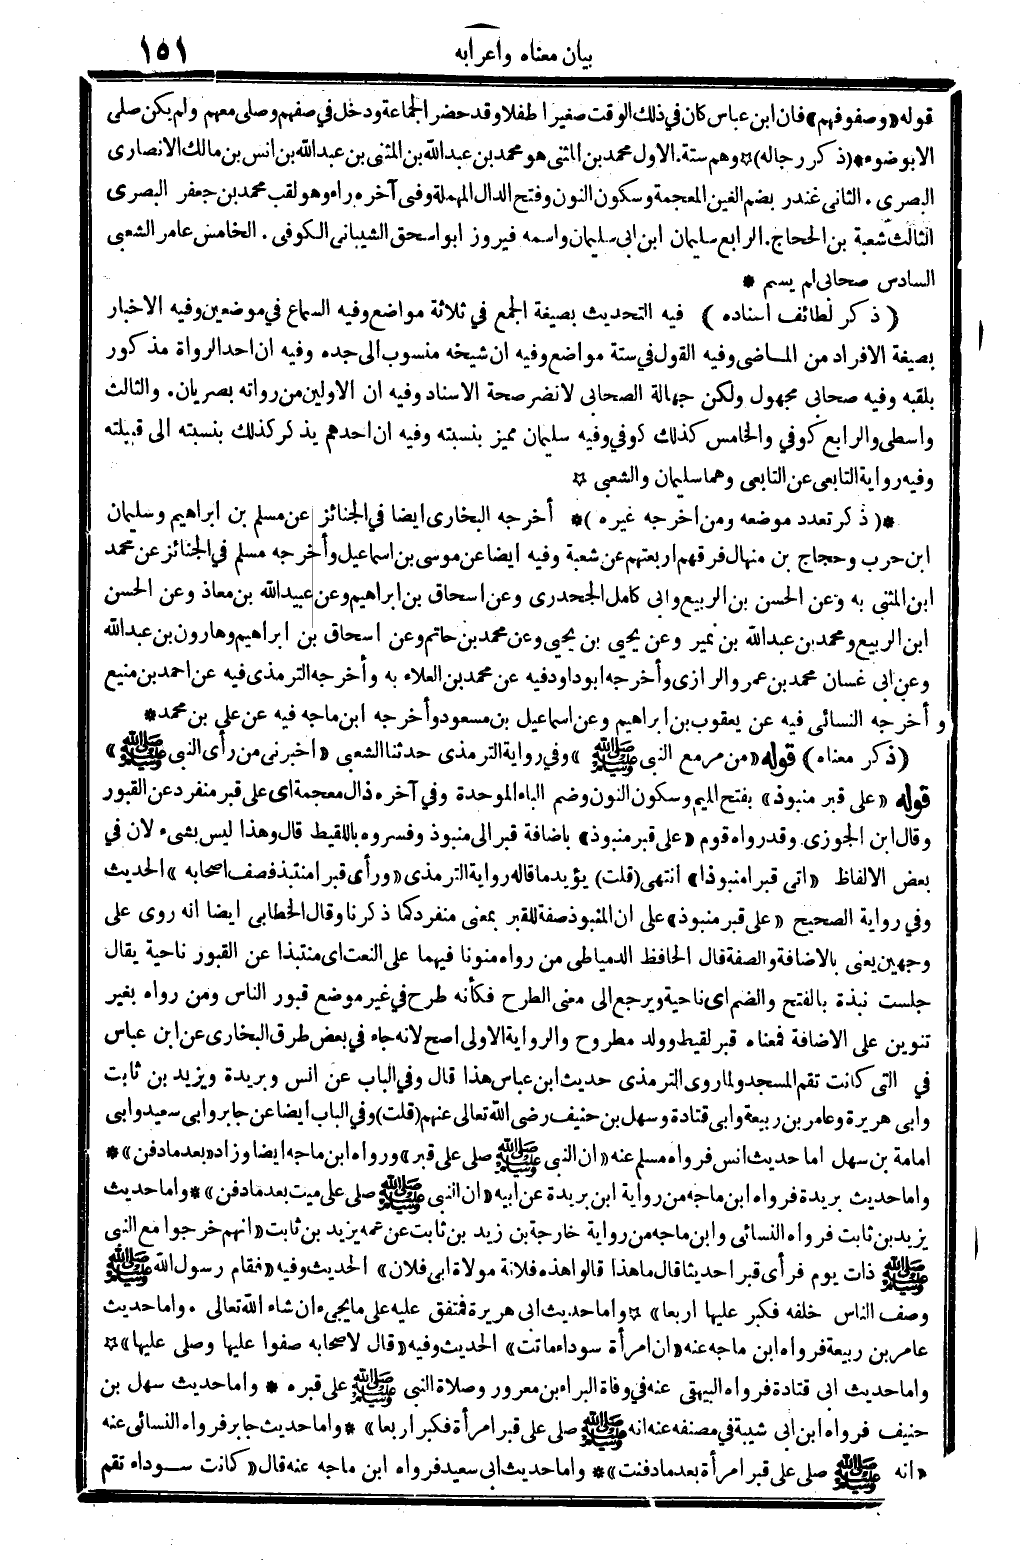 بيان معناه واعرابه ١٥١
قوله «وصفوفهم» فان ابن عباس كان في ذلك الوقت صغيرا طفلا وقد حضر الجماعة ودخل في صفهم وصلى معهم ولم يكن صلى
الابوضوء *(ذكر رجاله)* وهم ستة. الاول محمد بن المثنى هو محمد بن عبدالله بن المثنى بن عبدالله بن انس بن مالك الانصارى
البصرى . الثانى غندر بضم الغين المعجمة وسكون النون وفتح الدال المهملة وفى آخره راء وهو لقب محمد بن جعفر البصرى
الثالث شعبة بن الحجاج . الرابع سليمان ابن ابى سليمان واسمه فيروز ابو اسحق الشيبانى الكوفى . الخامس عامر الشعبى
السادس صحابى لم يسم *
( ذكر لطائف اسناده ) فيه التحديث بصيغة الجمع في ثلاثة مواضع وفيه السماع في موضعين وفيه الاخبار
بصيغة الافراد من الماضى وفيه القول في ستة مواضع وفيه ان شيخه منسوب الى جده وفيه ان احد الرواة مذكور
بلقبه وفيه صحابى مجهول ولكن جهالة الصحابى لا تضر صحة الاسناد وفيه ان الاولين من رواته بصريان . والثالث
واسطى والرابع كوفي والخامس كذلك كوفي وفيه سليمان مميز بنسبته وفيه ان احدهم يذكر كذلك بنسبته الى قبيلته
وفيه رواية التابعى عن التابعى وهما سليمان والشعبى ☆
*( ذكر تعدد موضعه ومن اخرجه غيره )* أخرجه البخارى ايضا في الجنائز عن مسلم بن ابراهيم وسليمان
ابن حرب وحجاج بن منهال فرقهم اربعتهم عن شعبة وفيه ايضا عن موسى بن اسماعيل وأخرجه مسلم في الجنائز عن محمد
ابن المثنى به وعن الحسن بن الربيع وابى كامل الجحدرى وعن اسحاق بن ابراهيم وعن عبيدالله بن معاذ وعن الحسن
ابن الربيع ومحمد بن عبدالله بن نمير وعن يحيى بن يحيى وعن محمد بن حاتم وعن اسحاق بن ابراهيم وهارون بن عبدالله
وعن ابى غسان محمد بن عمرو الرازى وأخرجه ابو داود فيه عن محمد بن العلاء به وأخرجه الترمذى فيه عن احمد بن منيع
وأخرجه النسائى فيه عن يعقوب بن ابراهيم وعن اسماعيل بن مسعود وأخرجه ابن ماجه فيه عن على بن محمد *
(ذكر معناه) قوله «من مر مع النبى ﷺ» وفي رواية الترمذى حدثنا الشعبى «اخبرنى من رأى النبى ﷺ»
قوله «على قبر منبوذ» بفتح الميم وسكون النون وضم الباء الموحدة وفي آخره ذال معجمة اى على قبر منفرد عن القبور
وقال ابن الجوزى وقد رواه قوم «على قبر منبوذ» باضافة قبر الى منبوذ وفسروه باللقيط قال وهذا ليس بشىء لان في
بعض الالفاظ «اتى قبرا منبوذا» انتهى (قلت) يؤيد ما قاله رواية الترمذى «ورأى قبرا منتبذ فصف اصحابه» الحديث
وفي رواية الصحيح «على قبر منبوذ» على ان المنبوذ صفة للقبر بمعنى منفرد كما ذكرنا وقال الخطابى ايضا انه روى على
وجهين يعنى بالاضافة والصفة قال الحافظ الدمياطى من رواه منونا فيهما على النعت اى منتبذا عن القبور ناحية يقال
جلست نبذة بالفتح والضم اى ناحية ويرجع الى معنى الطرح فكأنه طرح في غير موضع قبور الناس ومن رواه بغير
تنوين على الاضافة فمعناه قبر لقيط وولد مطروح والرواية الاولى اصح لانه جاء في بعض طرق البخارى عن ابن عباس
في التى كانت تقم المسجد ولما روى الترمذى حديث ابن عباس هذا قال وفي الباب عن انس وبريدة ويزيد بن ثابت
وابى هريرة وعامر بن ربيعة وابى قتادة وسهل بن حنيف رضى الله تعالى عنهم (قلت) وفي الباب ايضا عن جابر وابى سعيد وابى
امامة بن سهل اما حديث انس فرواه مسلم عنه «ان النبى ﷺ صلى على قبر» ورواه ابن ماجه ايضا وزاد «بعد ما دفن» *
واما حديث بريدة فرواه ابن ماجه من رواية ابن بريدة عن ابيه «ان النبى ﷺ صلى على ميت بعد ما دفن» * واما حديث
يزيد بن ثابت فرواه النسائى وابن ماجه من رواية خارجة بن زيد بن ثابت عن عمه يزيد بن ثابت «انهم خرجوا مع النبى
ﷺ ذات يوم فرأى قبرا حديثا قال ما هذا قالوا هذه فلانة مولاة ابى فلان» الحديث وفيه «فقام رسول الله ﷺ
وصف الناس خلفه فكبر عليها اربعا» ☆ واما حديث ابى هريرة فمتفق عليه على ما يجىء ان شاء الله تعالى . واما حديث
عامر بن ربيعة فرواه ابن ماجه عنه «ان امرأة سوداء ماتت» الحديث وفيه «قال لاصحابه صفوا عليها وصلى عليها» ☆
واما حديث ابى قتادة فرواه البيهقى عنه في وفاة البراء بن معرور وصلاة النبى ﷺ على قبره * واما حديث سهل بن
حنيف فرواه ابن ابى شيبة في مصنفه عنه انه ﷺ صلى على قبر امرأة فكبر اربعا» * واما حديث جابر فرواه النسائى عنه
«انه ﷺ صلى على قبر امرأة بعد ما دفنت» * واما حديث ابى سعيد فرواه ابن ماجه عنه قال «كانت سوداء تقم